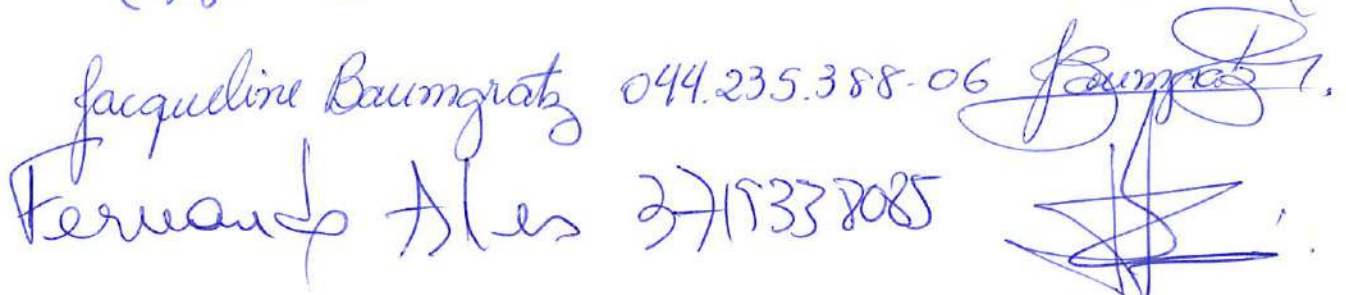 Jacqueline Baumgratz 044.235.388-06 JBaumgratz
Fernando Ales 3715338085